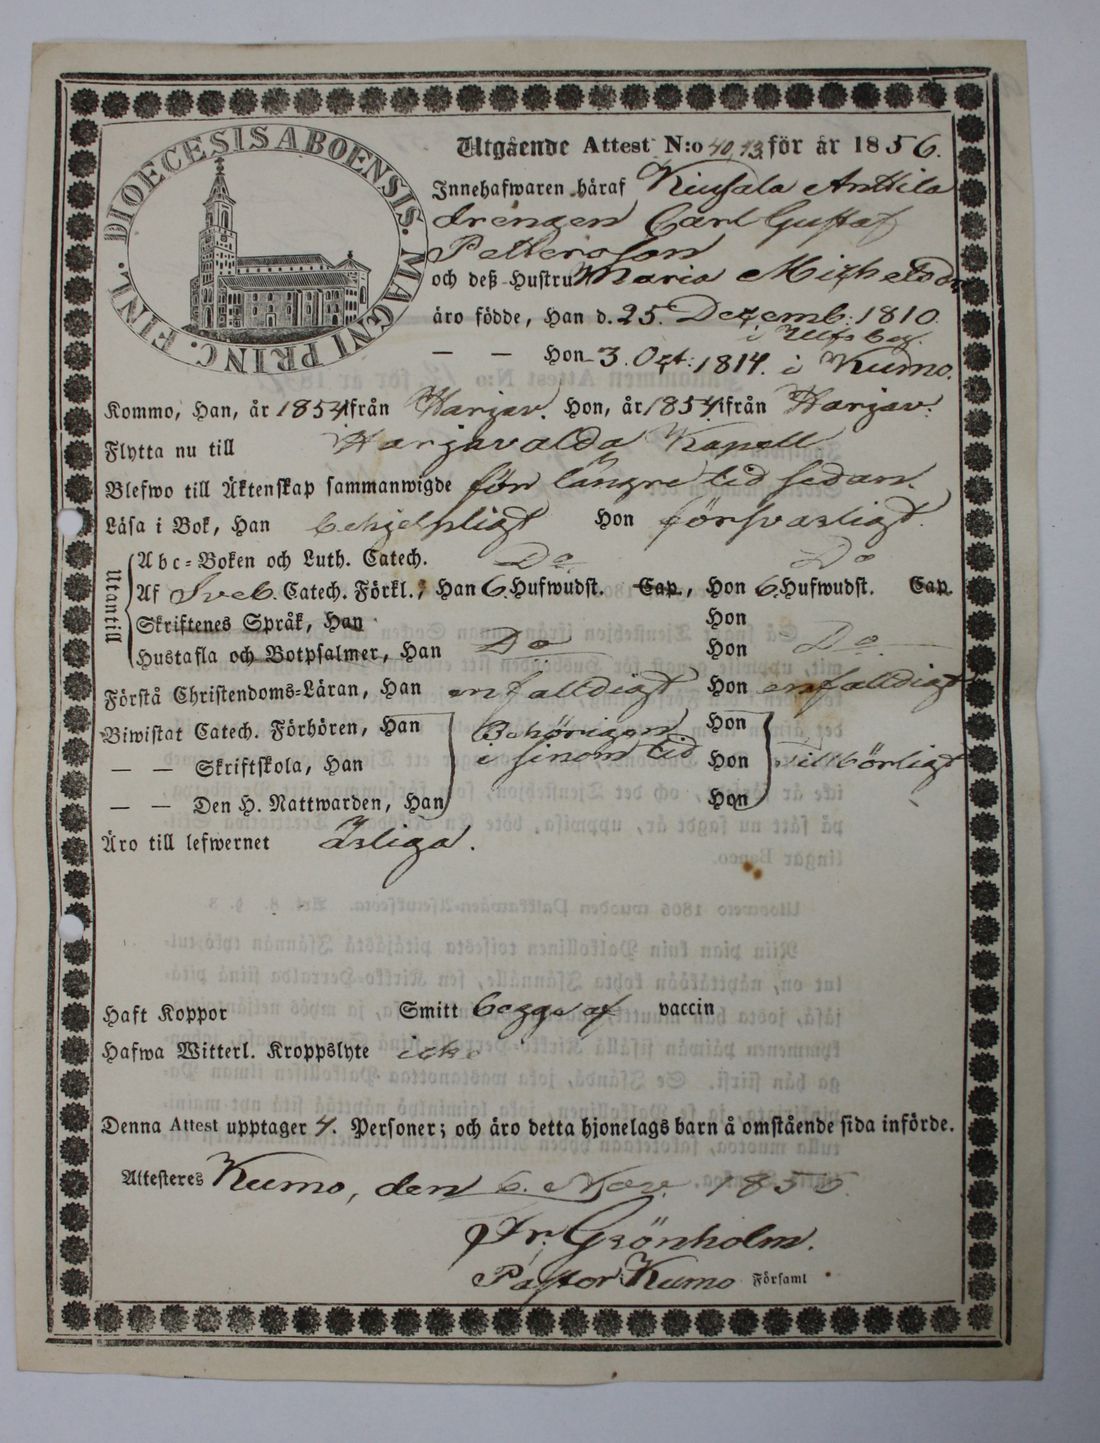 DIOECESIS ABOENSIS. MAGNI PRINC. FINL.
Utgående Attest N:o 40,43, för år 1856.
Innehafwaren häraf Kiusala Anttila
drengen Carl Gustaf
Pettersson
och deß Hustru Maria Michelsdr
äro födde, Han d. 25. Dezemb. 1810.
i Ulfsby.
— — Hon 3. Oct: 1814. i Kumo.
Kommo, Han, år 1854 ifrån Harjav. Hon, år 1854 ifrån Harjav.
Flytta nu till Harjavalda Kapell
Blefwo till Äktenskap sammanwigde för längre tid sedan.
Läsa i Bok, Han behjelpligt Hon försvarligt.
Utantill
Abc-Boken och Luth. Catech. Do Do
Af Sveb. Catech. Förkl., Han 6. Hufwudst. Cap., Hon 6. Hufwudst. Cap.
Skriftenes Språk, Han Hon
Hustafla och Botpsalmer, Han Do Hon Do
Förstå Christendoms-Läran, Han enfalldigt Hon enfalldigt
Biwistat Catech. Förhören, Han Behörigen Hon
— — Skriftskola, Han i sinom tid Hon Tillbörligt
— — Den H. Nattwarden, Han Hon
Äro till lefwernet ärliga.
Haft Koppor Smitt begge af vaccin
Hafwa Witterl. Kroppslyte icke
Denna Attest upptager 4. Personer; och äro detta hjonelags barn å omstående sida införde.
Attesteres Kumo, den 6. Nov. 1855.
Fr. Grönholm.
Pastor Kumo Församl